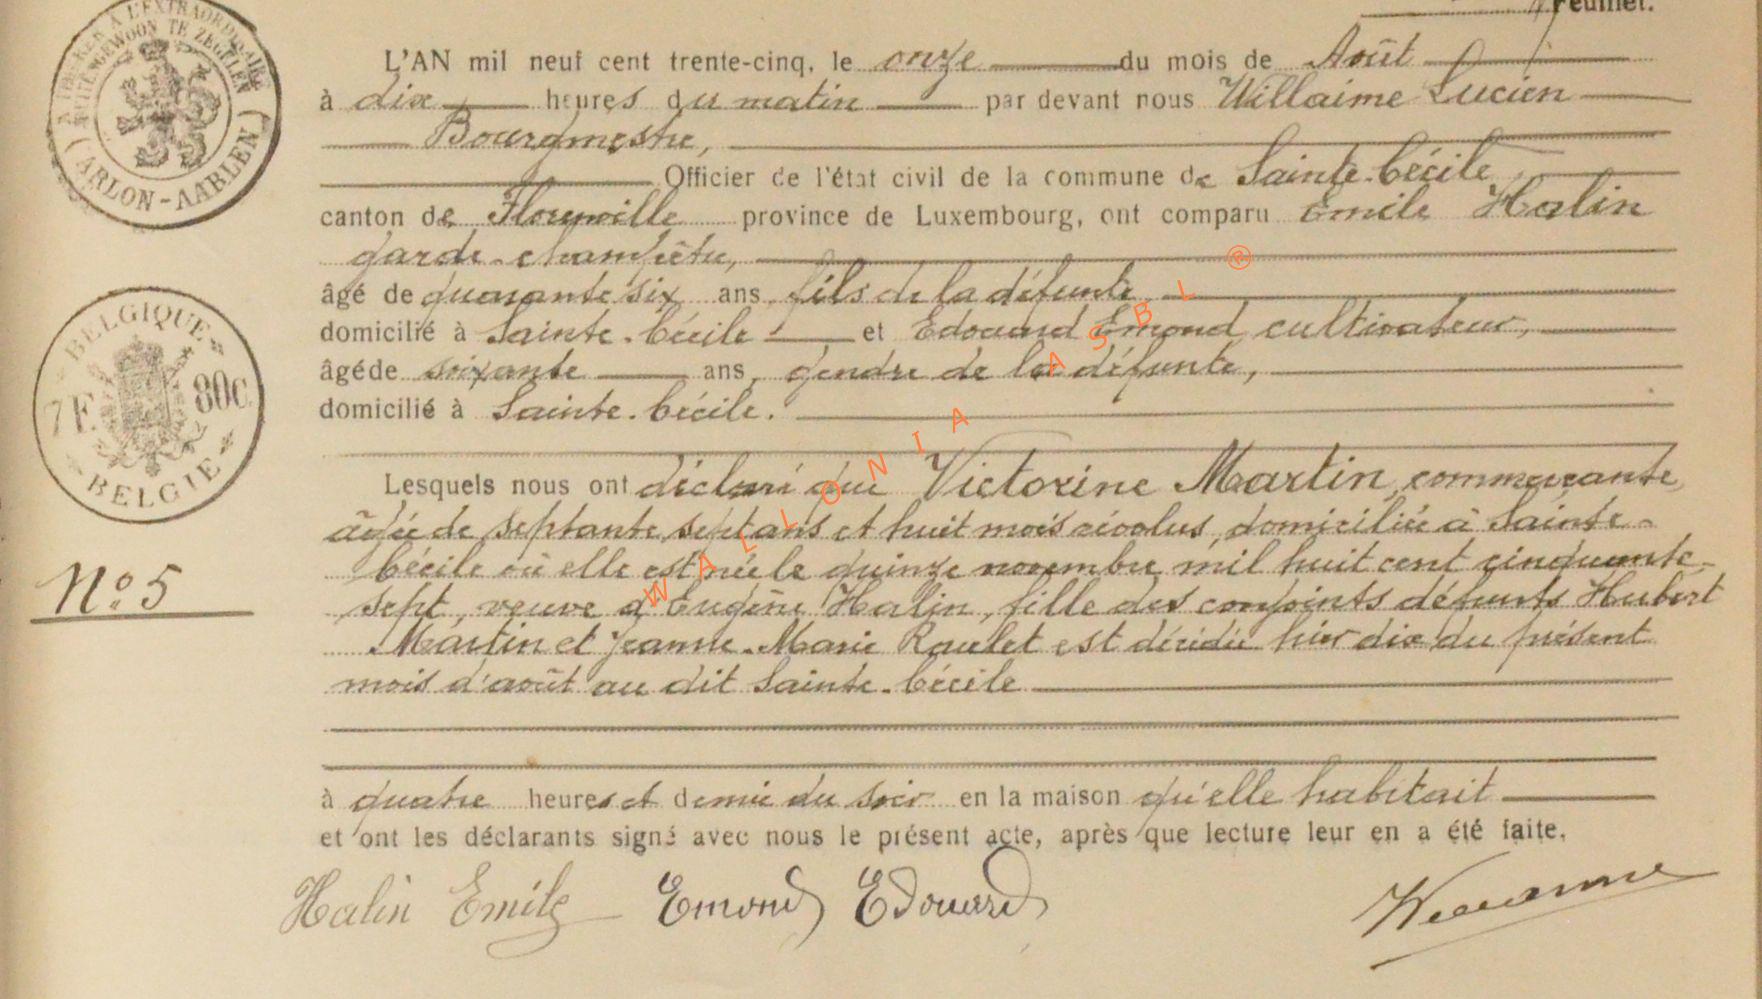 Feuillet.
L'AN mil neuf cent trente-cinq, le onze du mois de Août
à dix heures du matin par devant nous Willaime Lucien
Bourgmestre,
Officier de l'état civil de la commune de Sainte-Cécile
canton de Florenville province de Luxembourg, ont comparu Emile Halin
garde-champêtre,
âgé de quarante six ans, fils de la défunte
domicilié à Sainte-Cécile et Edouard Emond, cultivateur,
âgé de soixante ans, gendre de la défunte,
domicilié à Sainte-Cécile.
Lesquels nous ont déclaré que Victorine Martin, commerçante,
âgée de septante sept ans et huit mois révolus, domiciliée à Sainte-
Cécile où elle est née le quinze novembre mil huit cent cinquante-
sept, veuve d'Eugène Halin, fille des conjoints défunts Hubert
Martin et Jeanne-Marie Raulet est décédée hier dix du présent
mois d'août au dit Sainte-Cécile
à quatre heures et demie du soir en la maison qu'elle habitait
et ont les déclarants signé avec nous le présent acte, après que lecture leur en a été faite.
Halin Emile Emond Edouard
A L'EXTRAORDINAIRE
BUITENGEWOON TE ZEGELEN
(ARLON-AARLEN)
BELGIQUE
7F 80C
BELGIE
No 5
WALLONIA ASBL ®